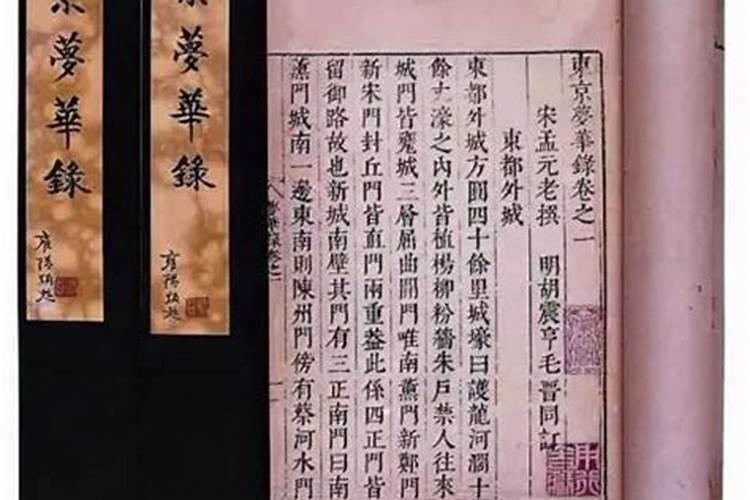 東京夢華錄卷之一
宋孟元老撰 明胡震亨毛晉同訂
東都外城
東都外城方圓四十餘里城壕曰護龍河濶十
餘丈濠之內外皆植楊柳粉牆朱戶禁人往來
城門皆甕城三層屈曲開門唯南薰門新鄭門
新宋門封丘門皆直門兩重蓋此係四正門皆
留御路故也新城南壁其門有三正南門曰南
薰門城南一邊東南則陳州門傍有蔡河水門
夢華錄
夢華錄